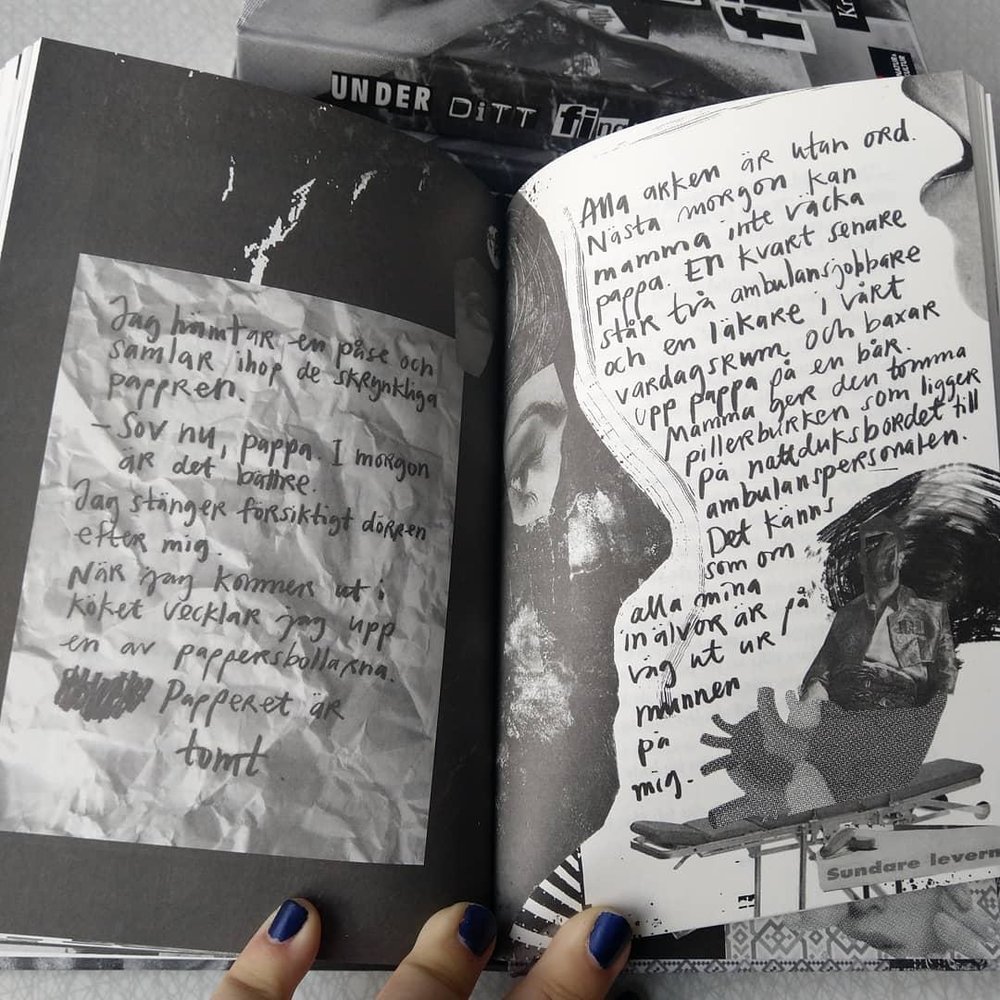 UNDER DiTT fing
Kr
Jag hämtar en påse och
samlar ihop de skrynkliga
pappren.
- Sov nu, pappa. I morgon
är det bättre.
Jag stänger försiktigt dörren
efter mig.
När jag kommer ut i
köket vecklar jag upp
en av pappersbollarna.
Papperet är
tomt
Alla arken är utan ord.
Nästa morgon kan
mamma inte väcka
pappa. En kvart senare
står två ambulansjobbare
och en läkare i vårt
vardagsrum och baxar
upp pappa på en bår.
Mamma ger den tomma
pillerburken som ligger
på nattduksbordet till
ambulanspersonalen.
Det känns
som om
alla mina
inälvor är på
väg ut ur
munnen
på
mig.
Sundare levern